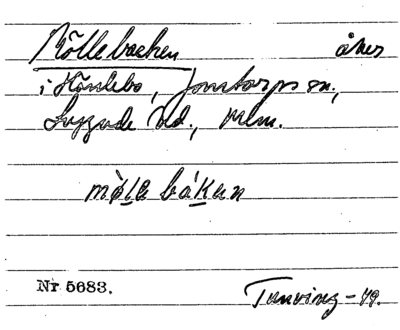 Möllebacken åker
i Hönlebo, Jonstorps sn.,
Luggude hd., Mlm.
mø̀le bákan
Nr 5683.
Tunving - 49.